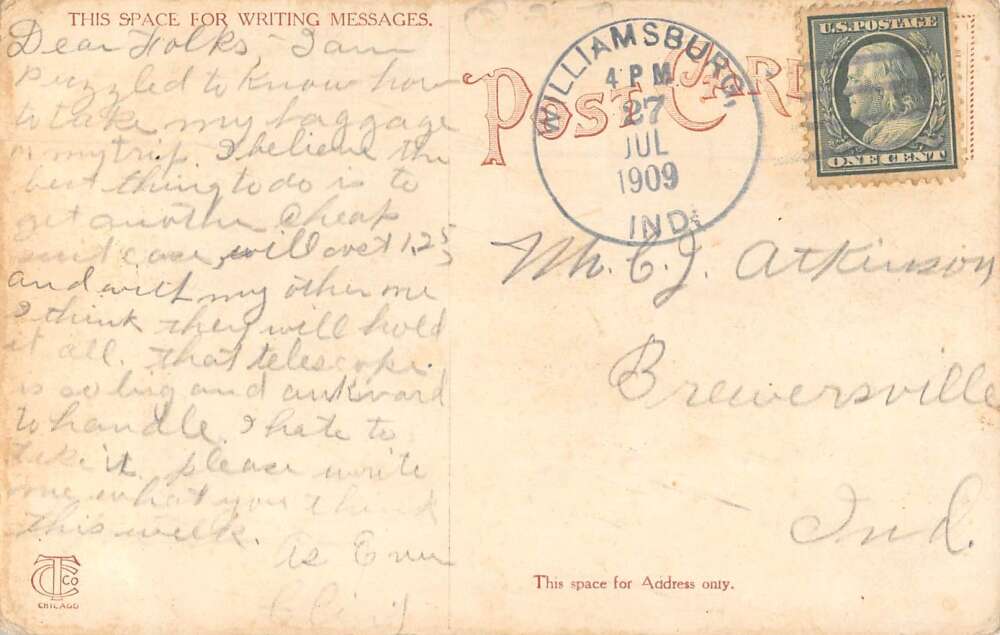 THIS SPACE FOR WRITING MESSAGES.
Dear Folks - I am
puzzled to know how
to take my baggage
on my trip. I believe the
best thing to do is to
get another cheap
suit case, will cost 1.25
and with my other one
I think they will hold
it all. that telescope
is so big and aukward
to handle. I hate to
take it. please write
me what you think
this week.
As Ever
POST CARD
WILLIAMSBURG,
4 PM
27
JUL
1909
IND.
U.S. POSTAGE
ONE CENT
Mr. C. J. Atkinson
Brewersville
Ind.
This space for Address only.
CTCo
CHICAGO